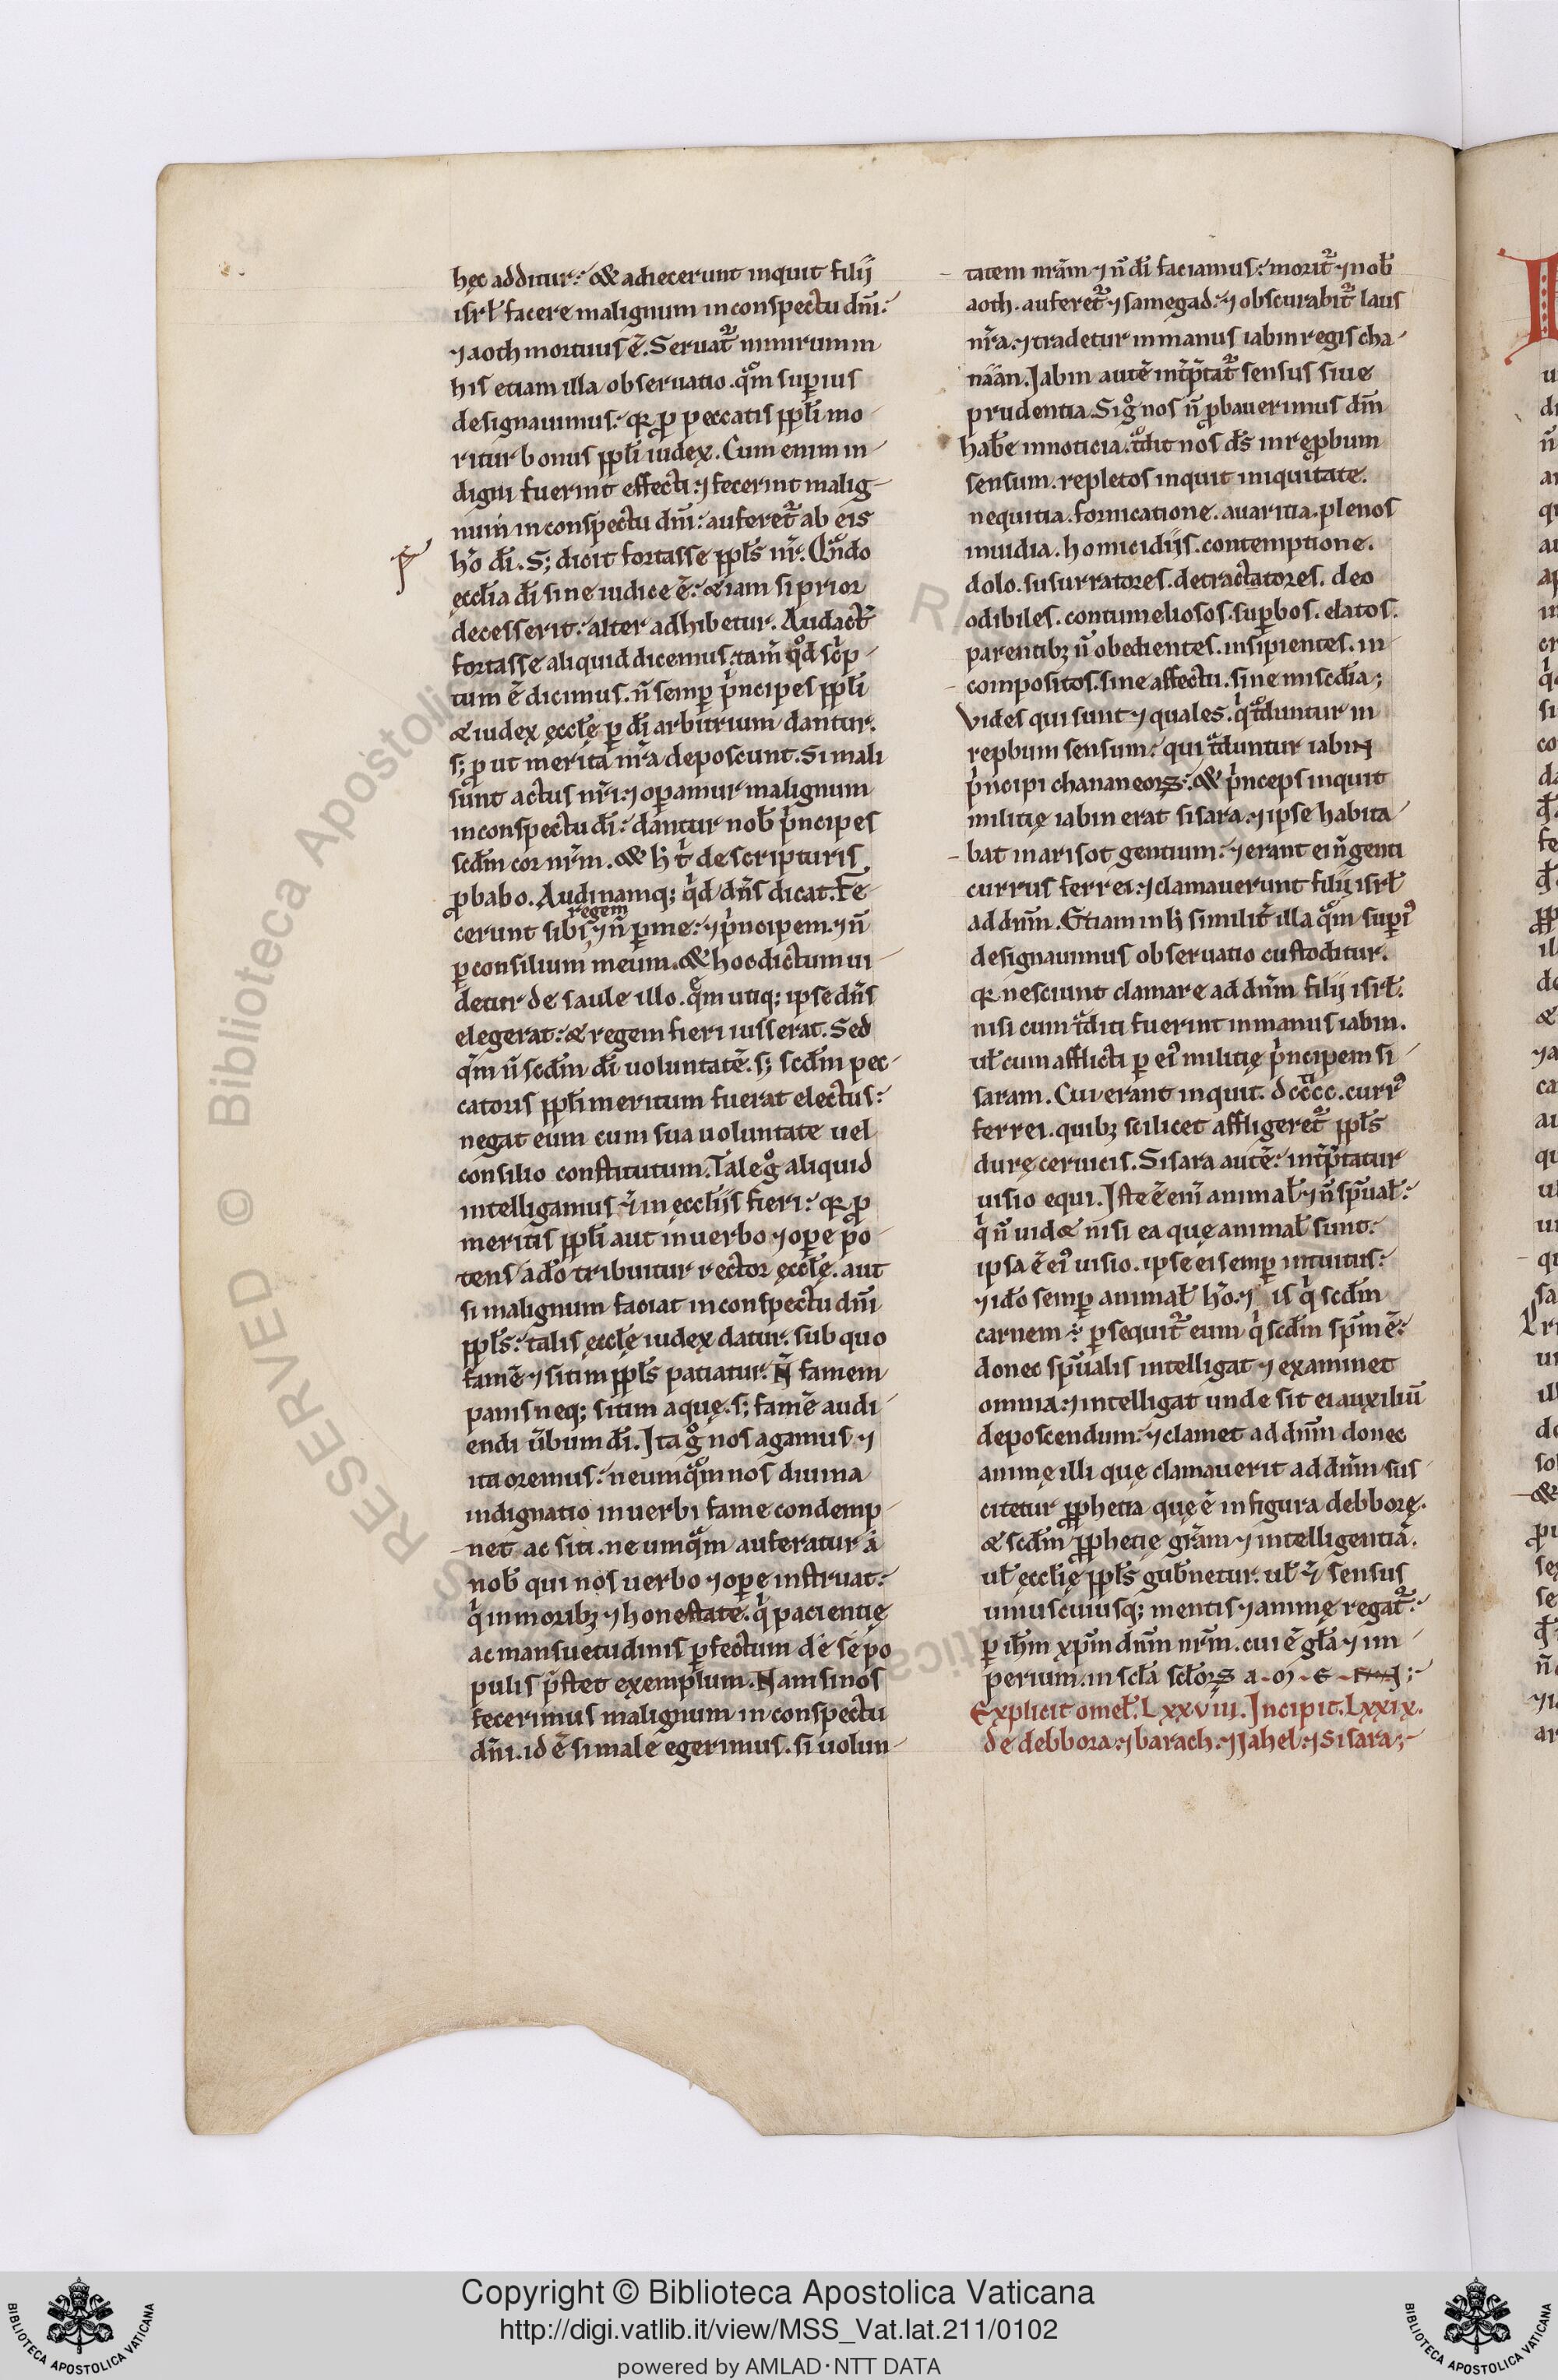 hęc additur: & adiecerunt inquit filij
isrł facere malignum in conspectu dñi:
⁊ aoth mortuus ẽ. Seruat᷑ nimirum in
his etiam illa obseruatio. qͦm superius
designauimus: qꝛ ꝓ peccatis ppłi mo-
ritur bonus ppłi iudex. Cum enim in-
digni fuerint effecti: ⁊ fecerint malig-
num in conspectu dñi: auferet᷑ ab eis
hõ di̅. S; dicit fortasse ppłs nr̃. Qn̅do
ęccłia di̅ sine iudice ẽ: & iam si prior
decesserit: alter adhibetur. Audact᷑
fortasse aliquid dicemus: tam̅ qd̅ sc̅p-
tum ẽ dicimus. n̅ semꝑ pͥncipes ppłi
& iudex ęccłę ꝑ di̅ arbitrium dantur.
s; ꝓut merita nr̃a deposcunt. Si mali
sunt actus nr̃i: ⁊ oꝑamur malignum
in conspectu di̅: dantur nob̅ pͥncipes
scd̅m cor nr̃m. & h̅ t̅ de scripturis
ꝓbabo. Audi namq; qͥd dñs dicat. Fe-
regem
cerunt sibi ⁊ n̅ ꝑ me: ⁊ pͥncipem. ⁊ n̅
ꝑ consilium meum. & hoc dictum ui-
detur de saule illo. qͤm utiq; ipse dñs
elegerat: & regem fieri iusserat. Sed
qm̅ n̅ scd̅m di̅ uoluntatẽ. s; scd̅m pec-
catoris ppłi meritum fuerat electus:
negat eum cum sua uoluntate uel
consilio constitutum. Tale gͦ aliquid
intelligamus ⁊ in ęccłijs fieri: qꝛ ꝓ
meritis ppłi aut in uerbo ⁊ oꝑe po-
tens a dõ tribuitur rector ęccłę. aut
si malignum faciat in conspectu dñi
ppłs: talis ęccłę iudex datur. sub quo
famẽ ⁊ sitim ppłs patiatur. N̅ famem
panis neq; sitim aquę. s; famẽ audi-
endi u̅bum di̅. Ita gͦ nos agamus ⁊
ita oremus: ne umqͣm nos diuina
indignatio in uerbi fame condemp-
net ac siti. ne umqͣm auferatur á
nob̅ qui nos uerbo ⁊ oꝑe instruat:
qͥ in moribꝫ ⁊ honestate. qͥ pacientię
ac mansuetudinis ꝑfectum dé se po-
pulis p̅stet exemplum. Nam si nos
fecerimus malignum in conspectu
dñi. id ẽ si male egerimus. si uolun-
tatem nr̃am ⁊ n̅ di̅ faciamus: morit᷑ ⁊ nob̅
aoth. auferet᷑ ⁊ samegad: ⁊ obscurabit᷑ laus
nr̃a. ⁊ tradetur in manus iabin regis cha-
náan. Iabin autẽ int̅p̅tat᷑ sensus siue
prudentia. Si gͦ nos n̅ ꝓbauerimus dm̅
hab̅e in noticia. tͣdit nos ds̅ in reꝓbum
sensum. repletos inquit iniquitate.
nequitia. fornicatione. auaritia. plenos
inuidia. homicidijs. contemptione.
dolo. susurratores. detractatores. deo
odibiles. contumeliosos. suꝑbos. elatos.
parentibꝫ n̅ obedientes. insipientes. in-
compositos. sine affectu. sine miscd̅ia;
Vides qui sunt ⁊ quales. qͥ tͣduntur in
repbum sensum: qui tͣduntur iabin
pͥncipi chananeoꝝ: & pͥnceps inquit
militię iabin erat sisara. ⁊ ipse habita-
bat in arisot gentium: ⁊ erant ei n̅genti
currus ferrei. ⁊ clamauerunt filij isrł
ad dn̅m. Etiam in h̅ similit᷑ illa qͦm suꝑiꝰ
designauimus obseruatio custoditur.
qꝛ nesciunt clamare ad dn̅m filij isrł.
nisi cum tͣditi fuerint in manus iabin.
uł cum afflicti ꝑ eiꝰ militię pͥncipem si-
saram. Cui erant inquit. dcccc. currꝰ
ferrei. quibꝫ scilicet affligeret᷑ ppłs
durę ceruicis. Sisara autẽ: int̅p̅tatur
uisio equi. Iste ẽ eni̅ animał ⁊ n̅ sp̅uał:
qͥ n̅ uid& nisi ea quę animał sunt:
ipsa ẽ eiꝰ uisio. ipse ei semꝑ intuitus:
⁊ idõ semꝑ animał hõ. ⁊ is qͥ scd̅m
carnem ÷ ꝑsequit᷑ eum qͥ scd̅m sp̅m ẽ:
donec sp̅ualis intelligat ⁊ examinet
omnia: ⁊ intelligat unde sit ei auxiliũ
deposcendum: ⁊ clamet ad dn̅m donec
animę illi quę clamauerit ad dn̅m sus-
citetur ꝓphetia quę ẽ in figura debborę.
& scd̅m ꝓphetię gr̃am ⁊ intelligentiã.
uł ęccłię ppłs gub̅netur. uł ⁊ sensus
uniuscuiusq; mentis ⁊ animę regat᷑:
ꝑ ih̅m xp̅m dn̅m nr̃m. cui ẽ gła ⁊ im-
perium. in scła scłoꝝ a-m-e-n;
Explicit omeł. Lxxviii. Incipit. Lxxix.
de debbora: ⁊ barach: ⁊ Iahel: ⁊ Sisara;
Copyright © Biblioteca Apostolica Vaticana
http://digi.vatlib.it/view/MSS_Vat.lat.211/0102
powered by AMLAD·NTT DATA
BIBLIOTECA APOSTOLICA VATICANA
BIBLIOTECA APOSTOLICA VATICANA